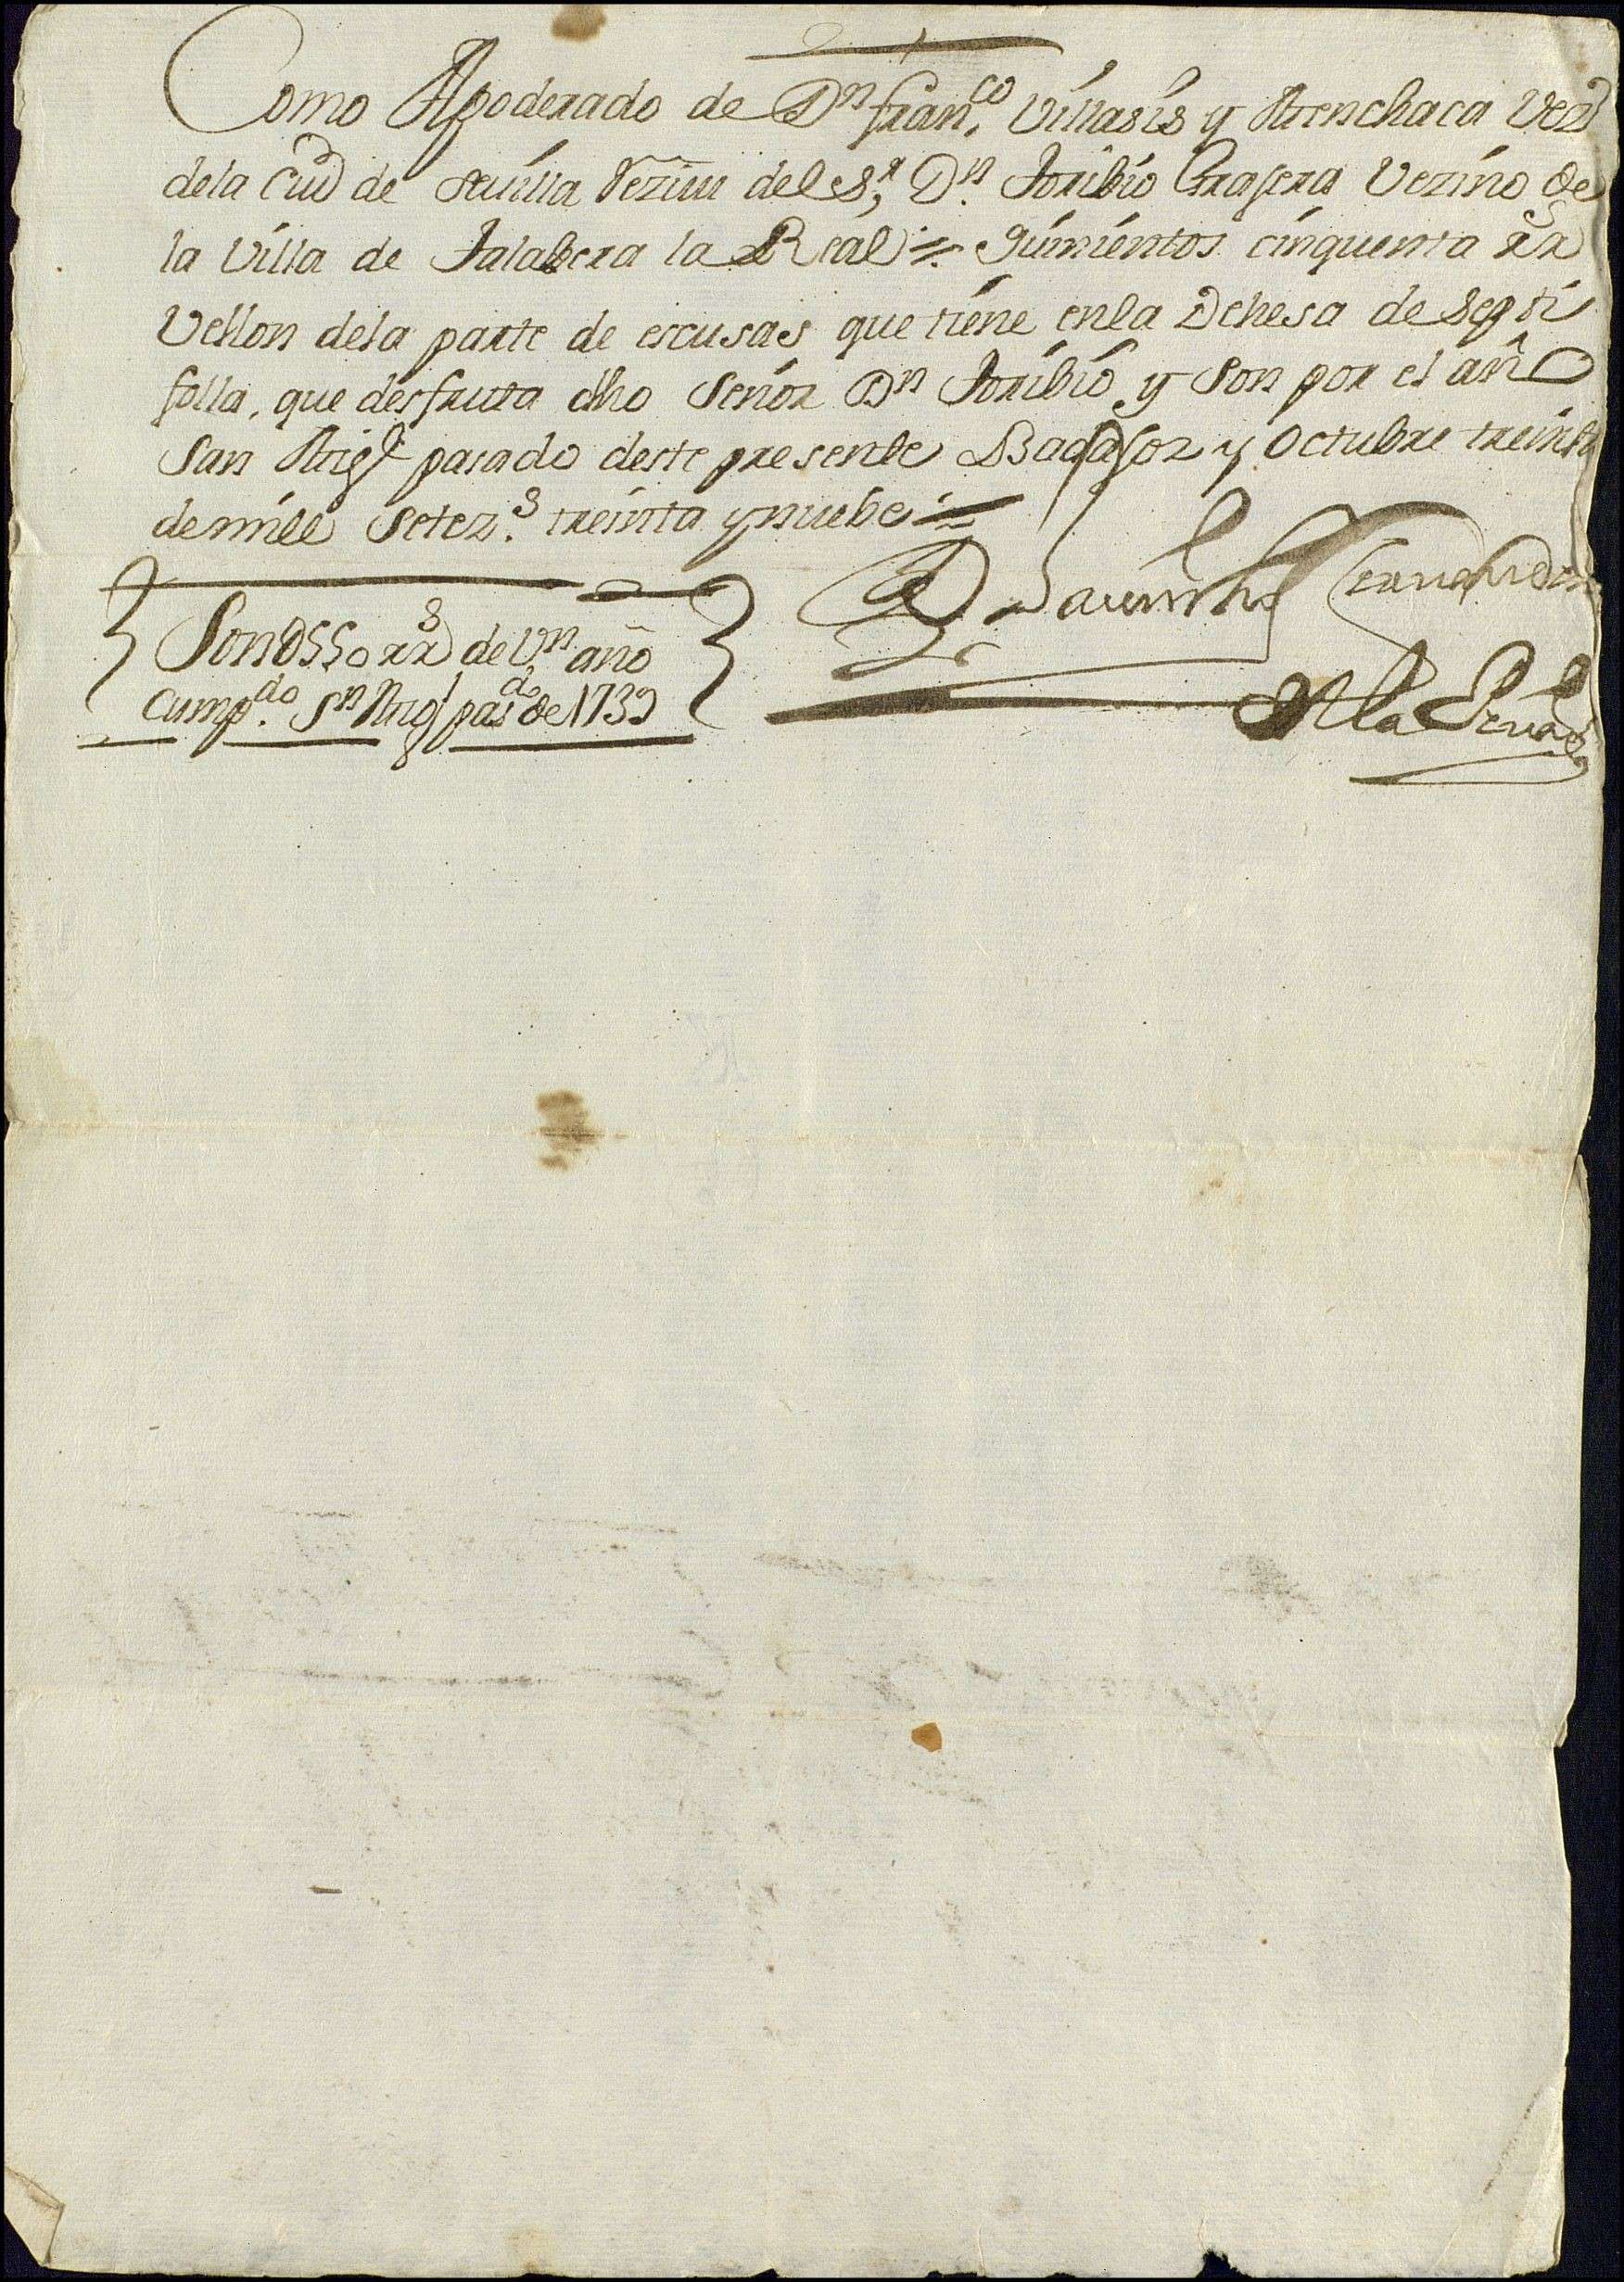 Como Apoderado de Dn Franco. Villasis y Menchaca Vezº
dela Ciud de Sevilla Rezivi del Sr. Dn. Toribio Gragera Vezino de
la Villa de Talabera la Real = Quinientos cinquenta rrs
Vellon dela parte de escusas que tiene enla Dehesa de Septi
folla, que desfruta dho Señor Dn Toribio y son por el año
San Migl pasado deste presente Badajoz y Octubre treinta
de mill Setezs. treinta y nuebe =
Fernandez
de la Serna
Son D550 rrs de Vn año
cumpdo. Sn Migl pasdo de 1739